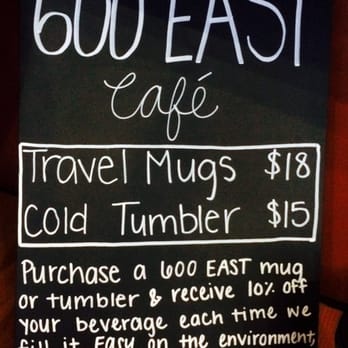 600 EAST
Café
Travel Mugs $18
Cold Tumbler $15
Purchase a 600 EAST mug
or tumbler & receive 10% off
your beverage each time we
fill it. Easy on the environment,